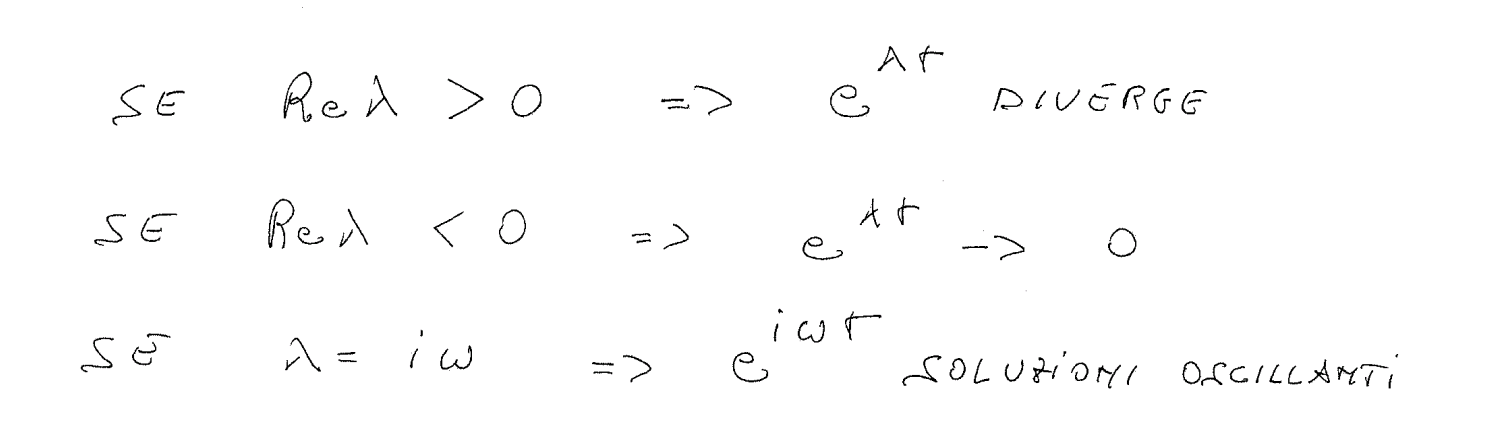 SE Re λ > 0 => e^{λt} DIVERGE
SE Re λ < 0 => e^{λt} -> 0
SE λ = iω => e^{iωt} SOLUZIONI OSCILLANTI